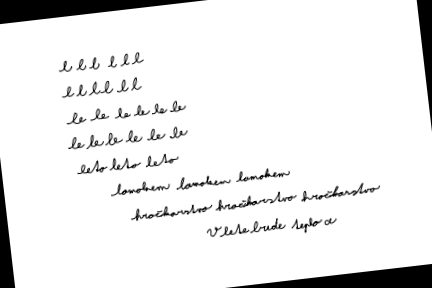 l l l l l l
l l l l l l
le le le le le le
le le le le le le
leto leto leto
lamohem lamohem lamohem
hročkarstvo hročkarstvo hročkarstvo
V lete bude teplo a